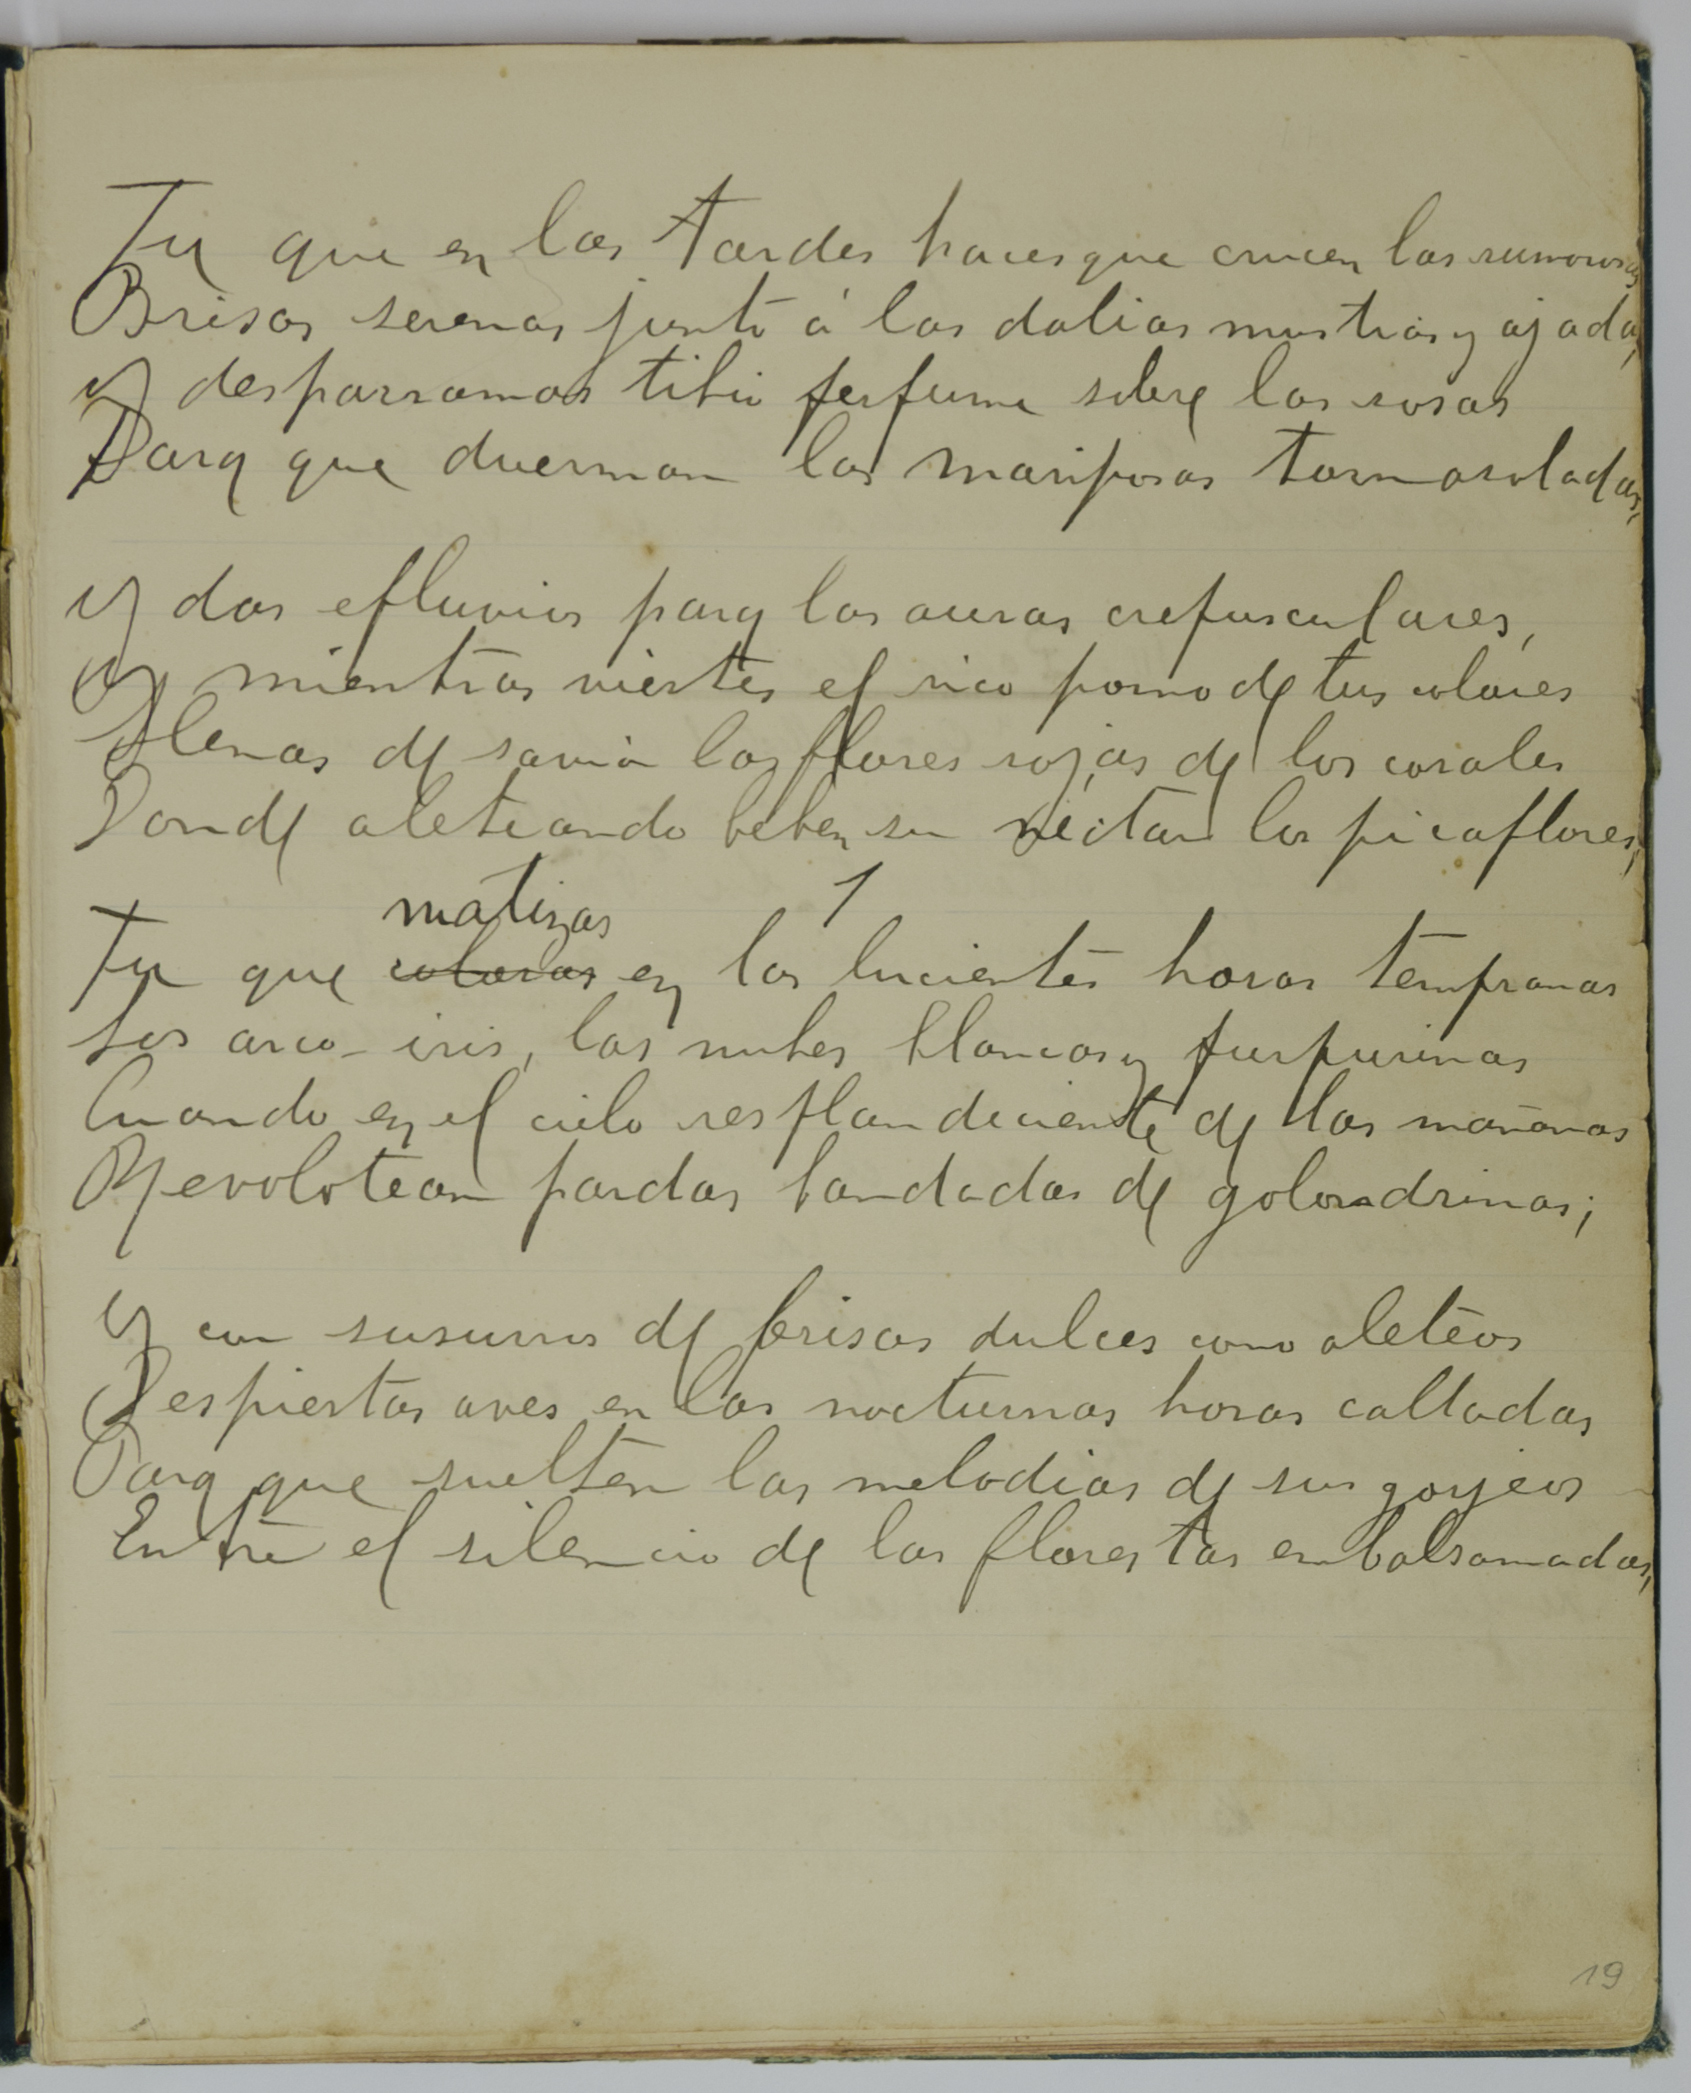 Tu que en las tardes haces que crucen las rumorosas
Brisas serenas junto á las dalias mustias y ajadas,
y desparramas tibio perfume sobre las rosas
Para que duerman las mariposas tornasoladas,
y das efluvios para las auras crepusculares,
y mientras viertes el rico pomo de tus colores
Llenas de savia las flores rojas de los corales
Donde aleteando beben su néctar los picaflores;
matizas 1
Tu que coloras en las lucientes horas tempranas
Los arco-iris, las nubes blancas y purpurinas
Cuando en el cielo resplandeciente de las mañanas
Revolotean pardas bandadas de golondrinas;
y con susurros de brisas dulces como aleteos
Despiertas aves en las nocturnas horas calladas
Para que suelten las melodias de sus gorjeos
Entre el silencio de las florestas embalsamadas,
19